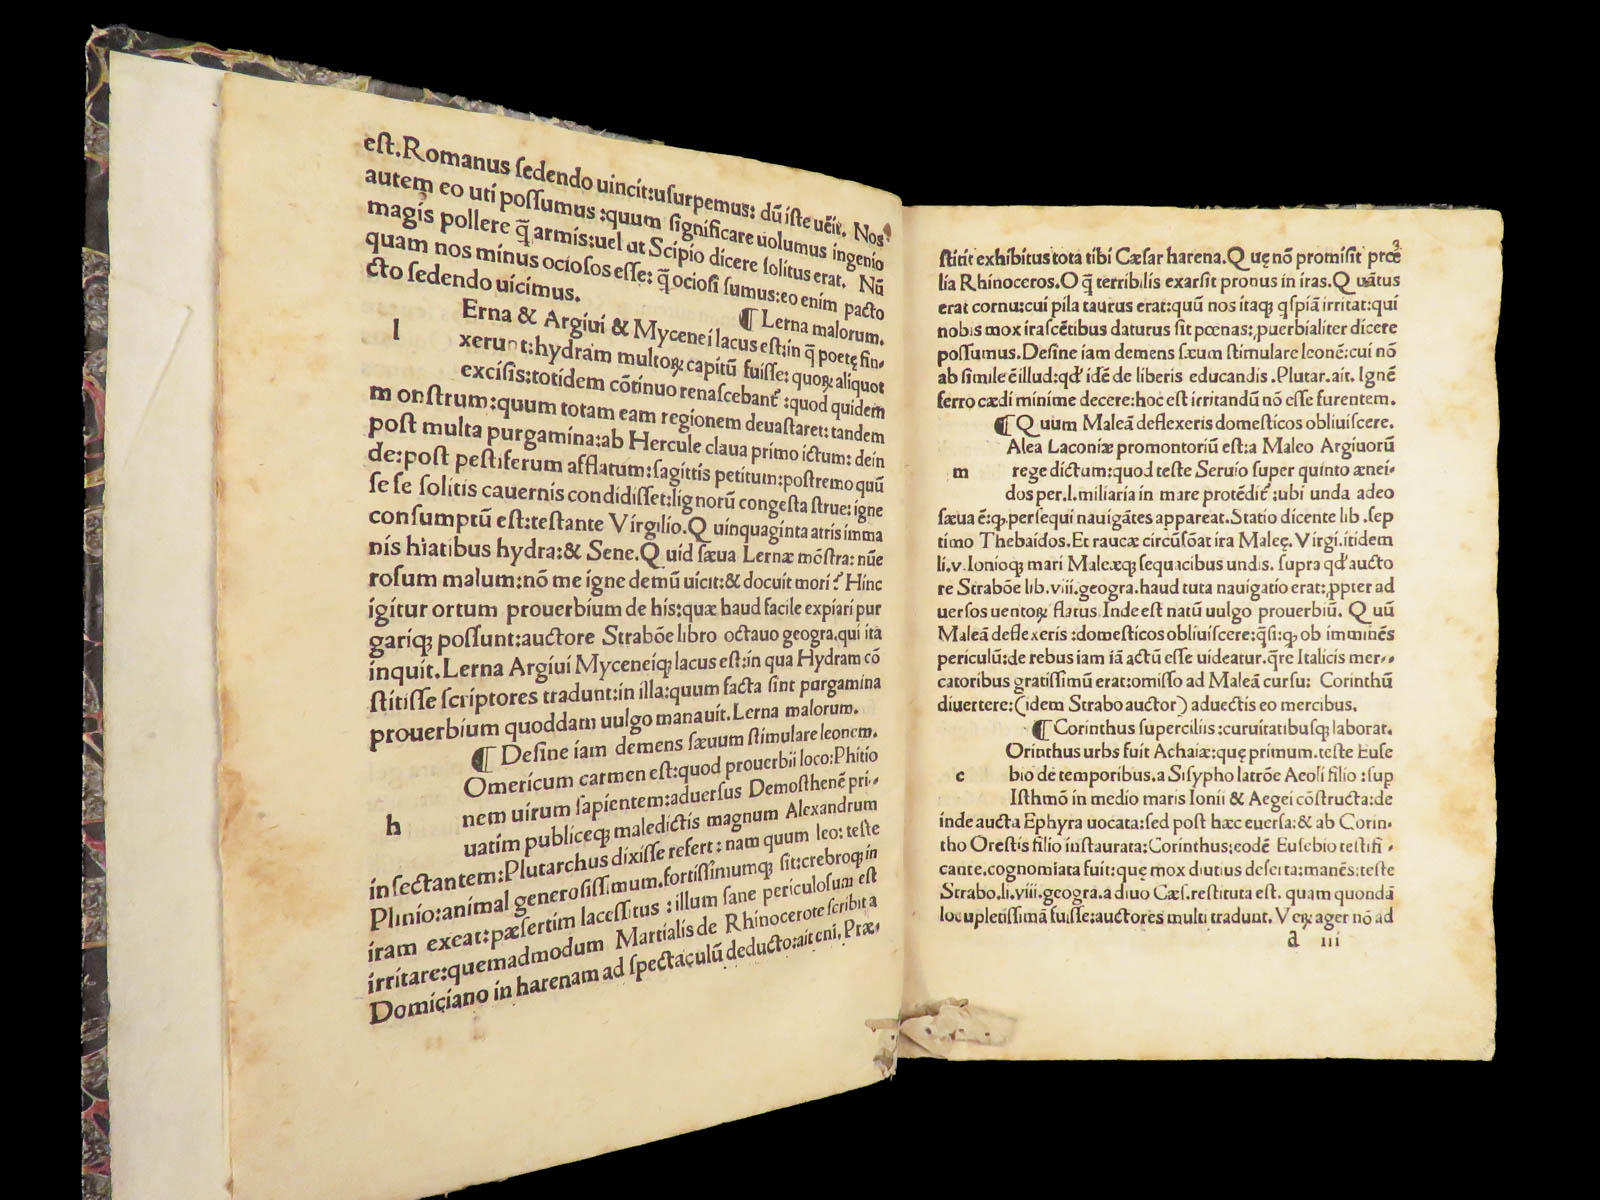 eſt.Romanus ſedendo uincit:uſurpemus: dū iſte uēit. Nos
autem eo uti poſſumus :quum ſignificare uolumus ingenio
magis pollere q̄ armis:uel ut Scipio dicere ſolitus erat. Nū
quam nos minus ocioſos eſſe: q̄ ocioſi ſumus:eo enim pacto
cto ſedendo uicimus.
¶ Lerna malorum.
l Erna & Argiui & Mycenei lacus eſt:in q̄ poetę fin-
xerunt:hydram multoꝝ capitū fuiſſe: quoꝝ aliquot
exciſis:totidem cōtinuo renaſcebant᷑ :quod quidem
monſtrum:quum totam eam regionem deuaſtaret: tandem
poſt multa purgamina:ab Hercule claua primo ictum: dein
de:poſt peſtiferum afflatum:ſagittis petitum:poſtremo quū
ſe ſe ſolitis cauernis condidiſſet:lignorū congeſta ſtrue: igne
conſumptū eſt:teſtante Virgilio.Quinquaginta atris imma
nis hiatibus hydra:& Sene.Quid ſæua Lernæ mōſtra: nūe
roſum malum:nō me igne demū uicit:& docuit mori? Hinc
igitur ortum prouerbium de his:quæ haud facile expiari pur
gariqꝫ poſſunt:auctore Strabōe libro octauo geogra.qui ita
inquit.Lerna Argiui Myceneiqꝫ lacus eſt:in qua Hydram cō
ſtitiſſe ſcriptores tradunt:in illa:quum facta ſint purgamina
prouerbium quoddam uulgo manauit.Lerna malorum.
¶ Deſine iam demens ſæuum ſtimulare leonem.
h Omericum carmen eſt:quod prouerbii loco:Phitio
nem uirum ſapientem:aduerſus Demoſthenē pri-
uatim publiceqꝫ maledictis magnum Alexandrum
inſectantem:Plutarchus dixiſſe refert: nam quum leo: teſte
Plinio:animal generoſiſſimum.fortiſſimumqꝫ ſit:crebroqꝫ in
iram exeat:pæſertim laceſſitus : illum ſane periculoſum eſt
irritare:quemadmodum Martialis de Rhinocerote ſcribit a
Domiciano in harenam ad ſpectaculū deducto:ait eni. Præ-
3
ſtitit exhibitus tota tibi Cæſar harena.Quę nō promiſit prœ
lia Rhinoceros.O q̄ terribilis exarſit pronus in iras.Quātus
erat cornu:cui pila taurus erat:quū nos itaqꝫ qſpiā irritat:qui
nobis mox iraſcētibus daturus ſit pœnas:ꝓuerbialiter dicere
poſſumus.Deſine iam demens ſæum ſtimulare leonē:cui nō
ab ſimile ē illud:qd᷑ idē de liberis educandis .Plutar.ait. Ignē
ferro cædi minime decere:hoc eſt irritandū nō eſſe furentem.
¶ Quum Maleā deflexeris domeſticos obliuiſcere.
m Alea Laconiæ promontoriū eſt:a Maleo Argiuorū
rege dictum:quod teſte Seruio ſuper quinto ænei-
dos per.l.miliaria in mare protēdit᷑ :ubi unda adeo
ſæua ē:qꝫ perſequi nauigātes appareat.Statio dicente lib .ſep
timo Thebaidos.Et raucæ circūſōāt ira Maleę.Virgi.itidem
li.v.Ionioqꝫ mari Maleæqꝫ ſequacibus undis. ſupra qd᷑ aucto
re Strabōe lib.viii.geogra.haud tuta nauigatio erat:ꝓpter ad
uerſos uentoꝝ flatus.Inde eſt natū uulgo prouerbiū. Quū
Maleā deflexeris :domeſticos obliuiſcere:q̄ſi:qꝫ ob imminēs
periculū:de rebus iam iā actū eſſe uideatur.q̄re Italicis mer-
catoribus gratiſſimū erat:omiſſo ad Maleā curſu: Corinthū
diuertere:(idem Strabo auctor) aduectis eo mercibus.
¶ Corinthus ſuperciliis:curuitatibuſqꝫ laborat.
c Orinthus urbs fuit Achaiæ:quę primum.teſte Euſe
bio de temporibus.a Siſypho latrōe Aeoli filio :ſup
Iſthmō in medio maris Ionii & Aegei cōſtructa:de
inde aucta Ephyra uocata:ſed poſt hæc euerſa:& ab Corin-
tho Oreſtis filio iuſtaurata:Corinthus:eodē Euſebio teſtifi -
cante.cognomiata fuit:quę mox diutius deſerta:manēs:teſte
Strabo.li.viii.geogra.a diuo Cæſ.reſtituta eſt. quam quondā
locupletiſſimā fuiſſe:auctores multi tradunt. Veꝝ ager nō ad
a iii